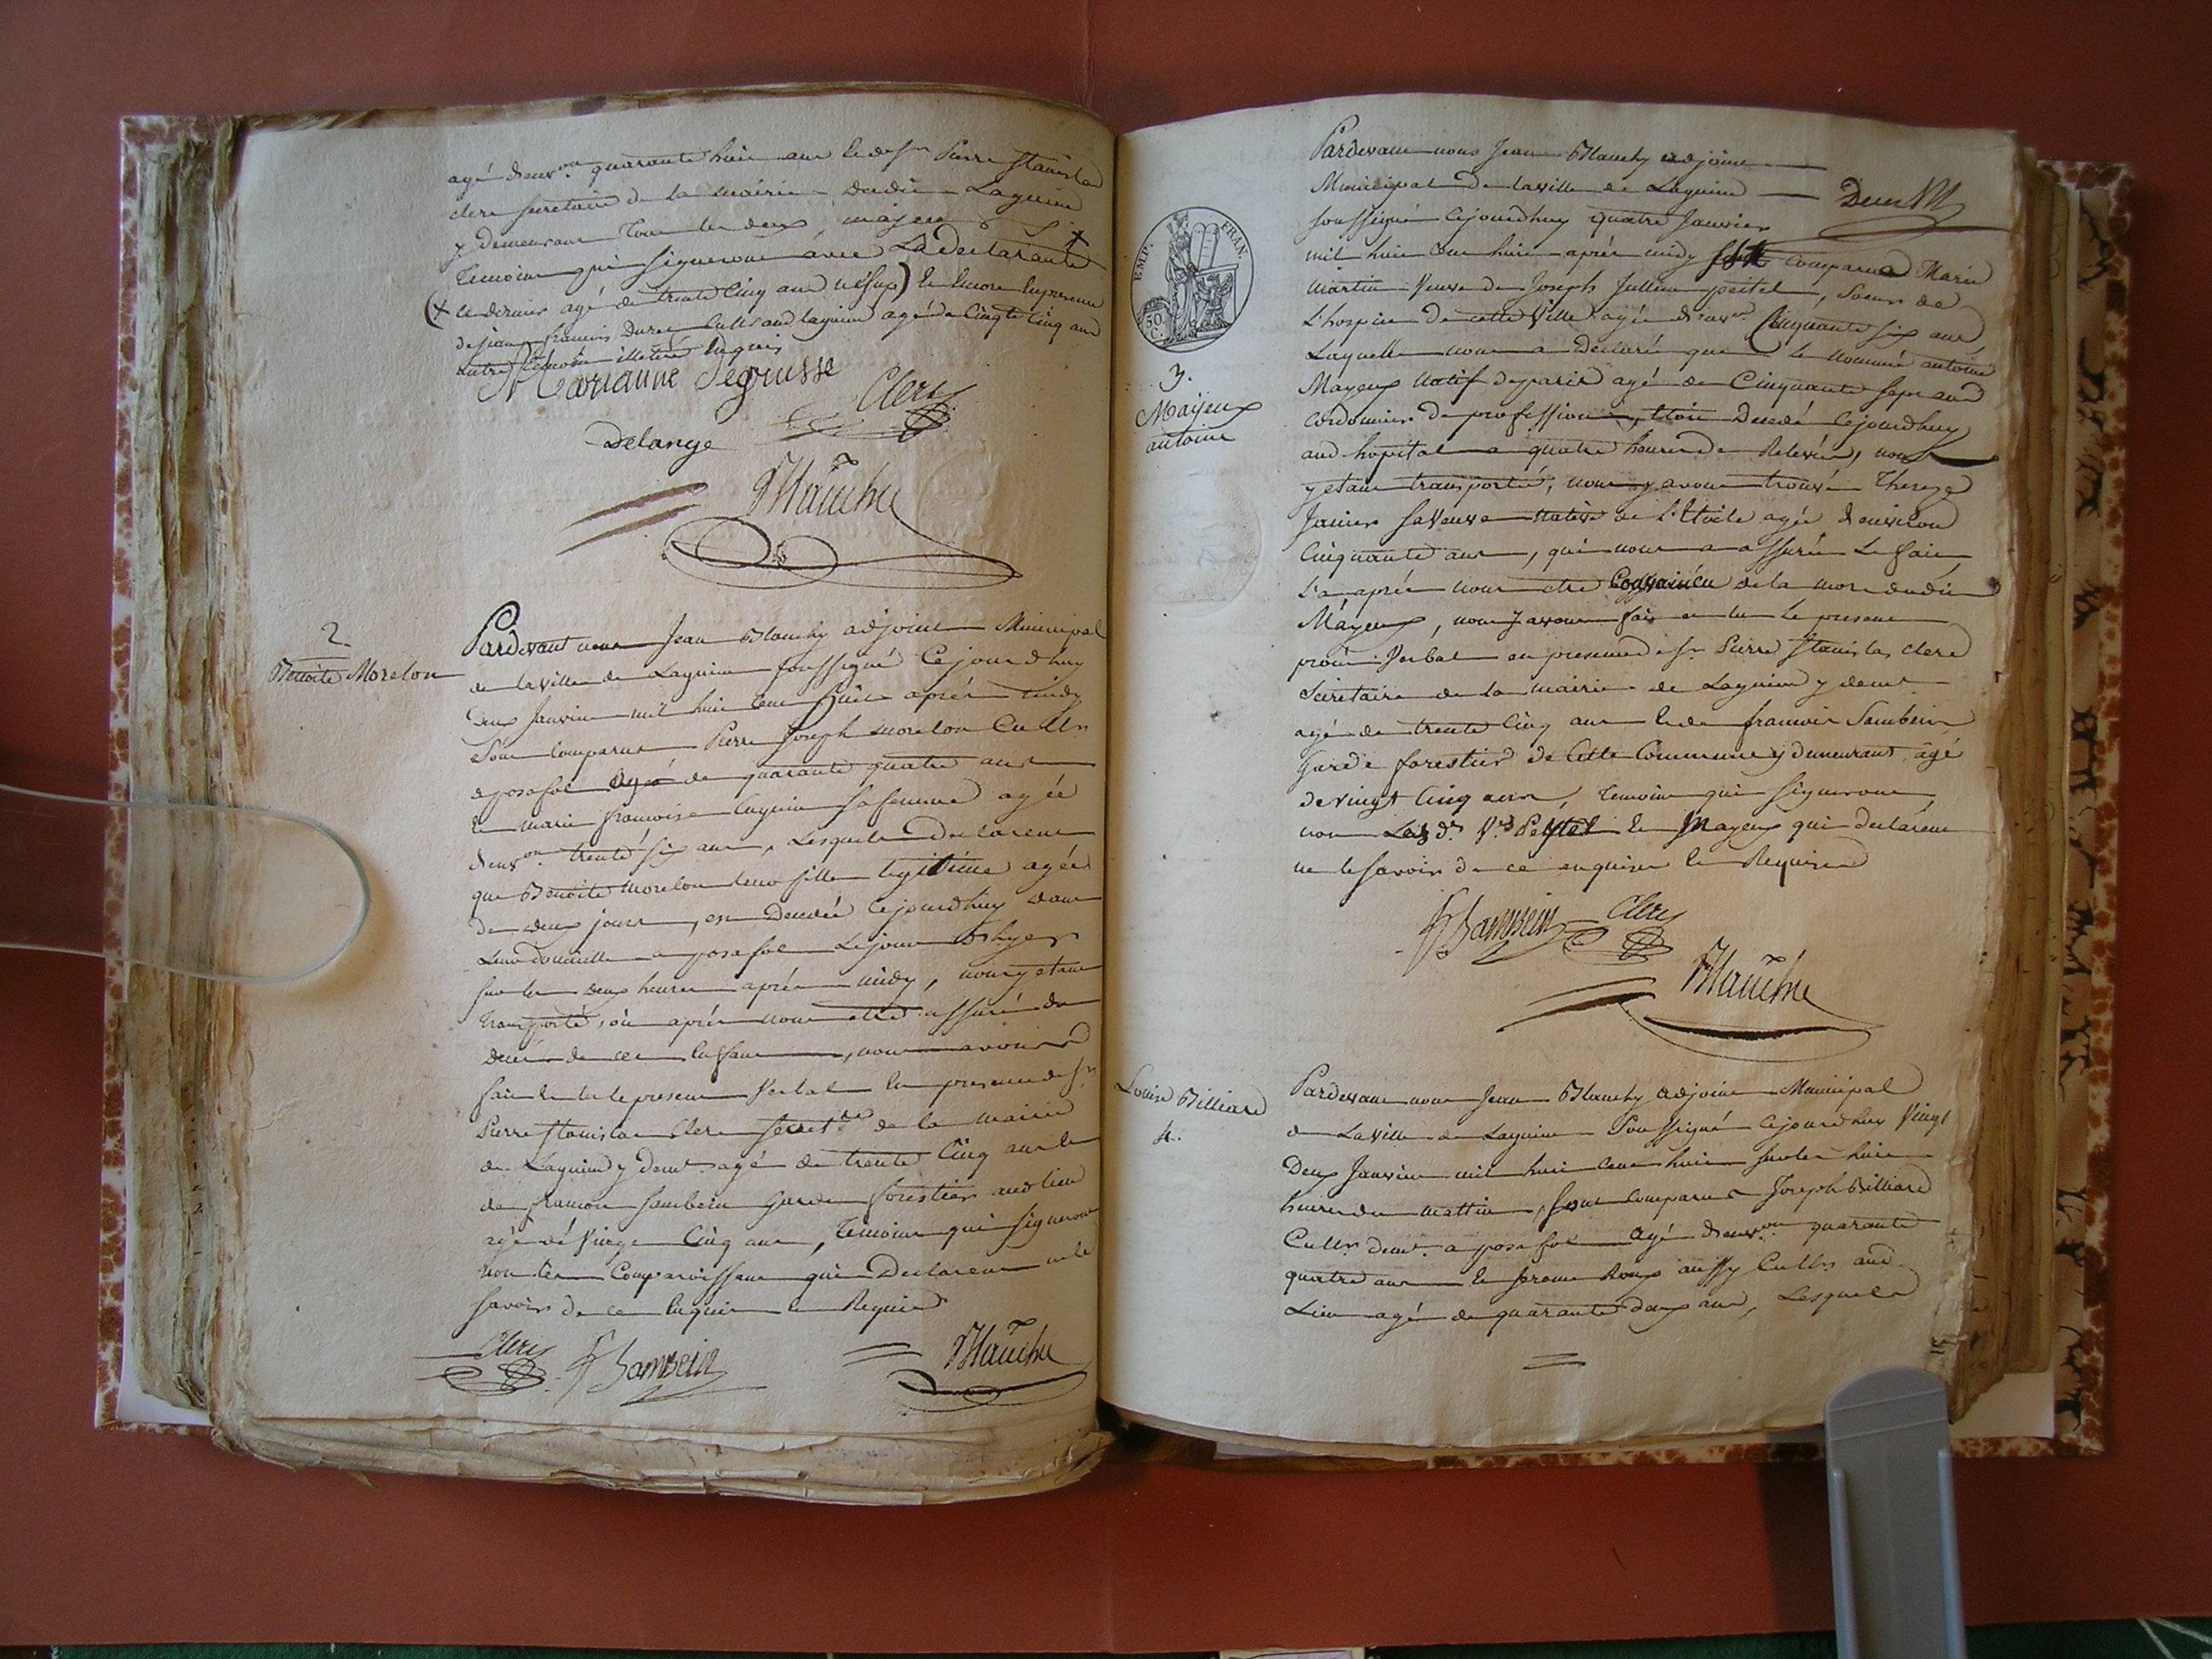 agé d'env.on quarante huit ans et de s.r Pierre Stanislas
clerc secretaire de la mairie dudit Lagnieu
y demeurant tous les deux majeurs
temoins qui signeront avec La declarante
(+ ce dernier agé de trente cinq ans
de jean francois cult.r aud lagnieu agé de Cinq.te Cinq ans
autre temoin illetéré enquis
Marianne Segousse
Clerc
Delange
Blanchy
2
Benoite Morelon
Pardevant nous Jean Blanchy adjoint Municipal
de la ville de Lagnieu soussigné Cejourdhuy
deux Janvier mil huit Cent huit après midy
Sont Comparus Pierre Joseph morelon Cult.r
a posafol agé de quarante quatre ans
et marie francoise sa femme agée
d'env.on trente six ans, Lesquels declarent
que Benoite Morelon leur fille legitime agée
de deux jours, est Decedée Cejourdhuy dans
Leur domicille a posafol
sur les deux heures après midy, nous y etant
transporté, où après nous etre assuré du
decès de cet enfant, nous avons
fait et lu le present verbal en presence de s.r
Pierre Stanislas Clerc secret.re de la mairie
de Lagnieu y dem.t agé de trente Cinq ans et
de francois Sambein Garde forestier aud lieu
agé de Vingt Cinq ans, Temoins qui signeront
non les Comparoissant qui Declarent ne le
savoir de ce Enquis et Requis
Clerc
f Sambein
Blanchy
EMP. FRAN.
50 C.
Deux
Pardevant nous Jean Blanchy adjoint
Municipal De laville de Lagnieu
soussigné Cejourdhuy quatre Janvier
mil huit Cent huit après midy Comparu Marie
martin Veuve de Joseph Jullien peitel, Soeur de
L'hospice De cette Ville agée d'env.on Cinquante six ans
Laquelle nous a Declaré que le nommé antoine
3.
Maÿeux
antoine
Mayeux Natif de paris agé de Cinquante sept ans
cordonnier de profession, etoit Decedé Cejourdhuy
aud hopital a quatre heures de Relevée, nous
y etant transporté, nous y avons trouvé Thereze
Janier sa Veuve native de L'Etoile agée d'environ
Cinquante ans, qui nous a assuré Le fait
Et après nous etre Convaincu de la mort dudit
Mayeux, nous avons fait et lu le present
procès Verbal en presence de s.r Pierre Stanislas clerc
Secretaire de la mairie de Lagnieu y dem.t
agé de trente Cinq ans et de francois Sambein
Garde forestier de Cette Commune y demeurant agé
de vingt Cinq ans, Temoins qui signeront
non Les d. V.es Peytel et Mayeux qui declarent
ne le savoir de ce enquises et Requises
f Sambein
Clerc
Blanchy
Louise Billiard
4.
Pardevant nous Jean Blanchy adjoint Municipal
de LaVille de Lagnieu Soussigné Cejourdhuy Vingt
Deux Janvier mil huit Cent huit sur les huit
heures du mattin, Sont Comparus Joseph Billiard
Cult.r dem.t a posafol Agé d'env.on quarante
quatre ans et Jerome Roux aussy Cult.r aud
Lieu agé de quarante deux ans, Lesquels